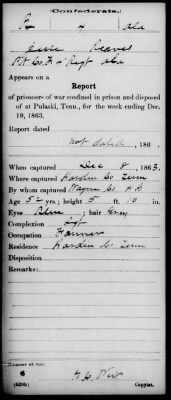 (Confederate.)
R 4 Ala
Jesse Reaves
Pvt Co. F. 4 Regt Ala
Appears on a
Report
of prisoners of war confined in prison and disposed
of at Pulaski, Tenn., for the week ending Dec.
19, 1863.
Report dated
not dated, 186 .
When captured Dec 8, 1863.
Where captured Hardin Co Tenn
By whom captured Wayne Co H G
Age 52 yrs; height 5 ft. 10 in.
Eyes Blue; hair Grey
Complexion Lgt
Occupation Farmer
Residence Hardin Co Tenn
Disposition
Remarks:
Number of roll:
6
(639b) Copyist.